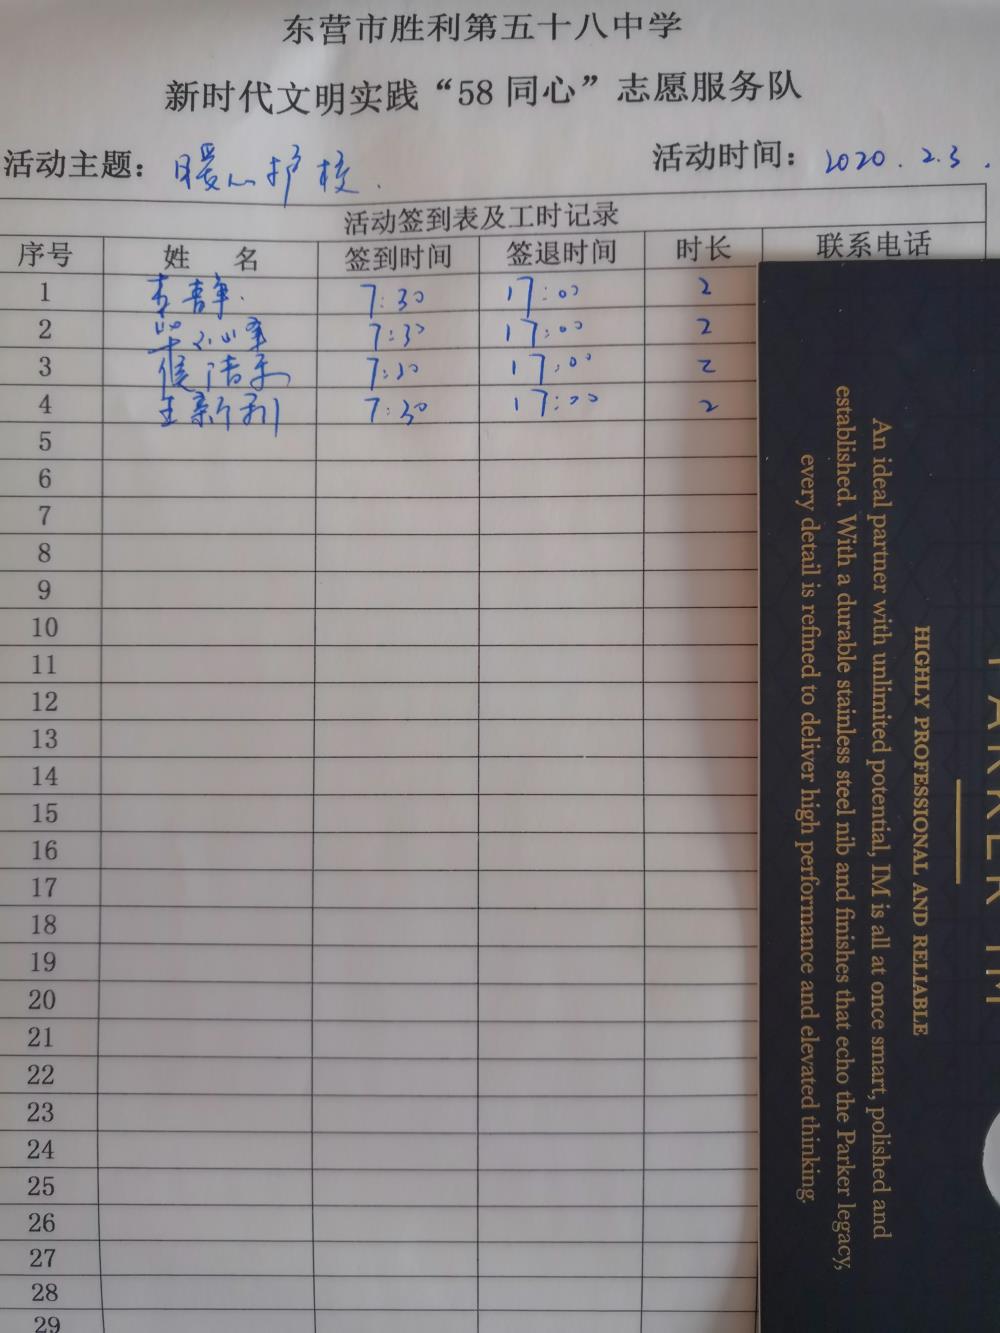 东营市胜利第五十八中学
新时代文明实践“58同心”志愿服务队
活动主题：暖心护校. 活动时间：2020.2.3.
活动签到表及工时记录
序号 姓 名 签到时间 签退时间 时长 联系电话
1 7:30 17:00 2
2 7:30 17:00 2
3 7:30 17:00 2
4 王新利 7:30 17:00 2
5
6
7
8
9
10
11
12
13
14
15
16
17
18
19
20
21
22
23
24
25
26
27
28
29
PARKER IM
HIGHLY PROFESSIONAL AND RELIABLE
An ideal partner with unlimited potential, IM is all at once smart, polished and
established. With a durable stainless steel nib and finishes that echo the Parker legacy,
every detail is refined to deliver high performance and elevated thinking.